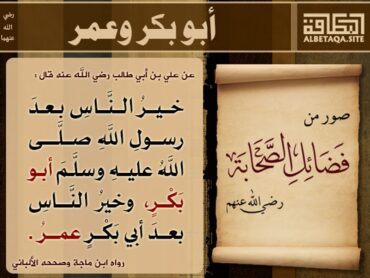 رضي
الله
عنهما
أبو بكر وعمر
البطاقة
ALBETAQA.SITE
عن علي بن أبي طالب رضي الله عنه قال :
خـيـرُ الـنَّـاسِ بـعـدَ
رسـولِ اللَّهِ صـلَّـى
اللَّهُ عليهِ وسلَّمَ أبو
بَكْرٍ، وخَيرُ النَّـاسِ
بـعـدَ أبي بَكْرٍ عمرُ .
رواه ابن ماجة وصححه الألباني
صور من
فضائل الصحابة
رضي الله عنهم